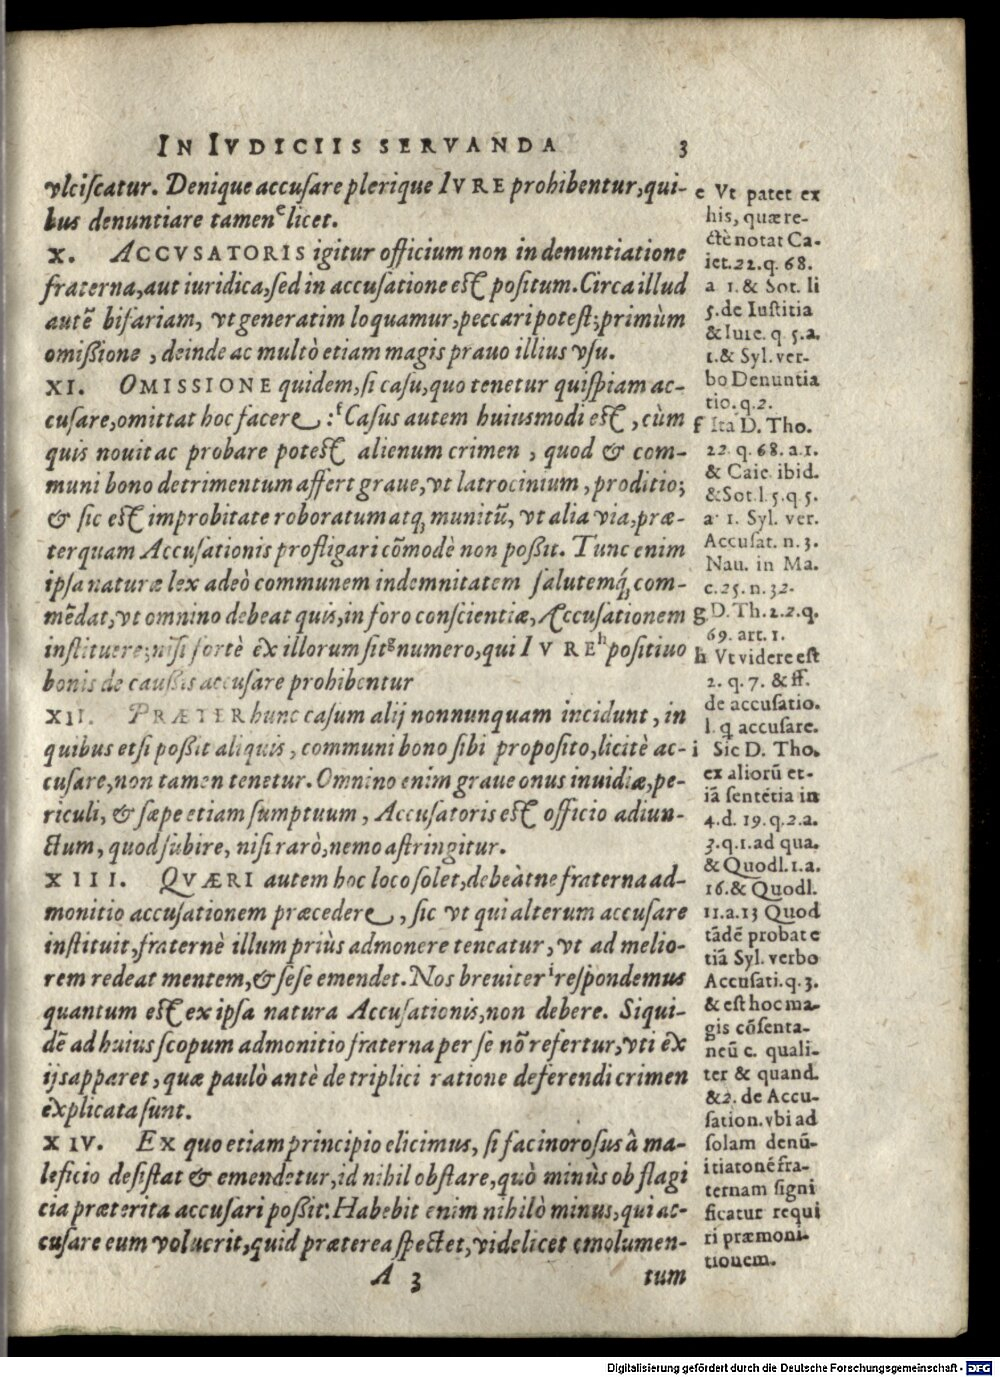 IN IVDICIIS SERVANDA 3
vlciſcatur. Denique accuſare plerique IVRE prohibentur, qui-
bus denuntiare tamen e licet.
X. ACCVSATORIS igitur officium non in denuntiatione
fraterna, aut iuridica, ſed in accuſatione eſt poſitum. Circa illud
autē bifariam, vt generatim loquamur, peccari poteſt; primùm
omißione, deinde ac multò etiam magis prauo illius vſu.
XI. OMISSIONE quidem, ſi caſu, quo tenetur quiſpiam ac-
cuſare, omittat hoc facere: f Caſus autem huiuſmodi eſt, cùm
quis nouit ac probare poteſt alienum crimen, quod & com-
muni bono detrimentum affert graue, vt latrocinium, proditio;
& ſic eſt improbitate roboratum atq; munitū, vt alia via, præ-
terquam Accuſationis profligari cōmodè non poßit. Tunc enim
ipſa naturæ lex adeò communem indemnitatem ſalutemq́; com-
mēdat, vt omnino debeat quis, in foro conſcientiæ, Accuſationem
inſtituere; niſi fortè ex illorum ſit g numero, qui IVRE h poſitiuo
bonis de caußis accuſare prohibentur
XII. PRÆTER hunc caſum alij nonnunquam incidunt, in
quibus etſi poßit aliquis, communi bono ſibi propoſito, licitè ac-
cuſare, non tamen tenetur. Omnino enim graue onus inuidiæ, pe-
riculi, & ſæpe etiam ſumptuum, Accuſatoris eſt officio adiun-
ctum, quod ſubire, niſi rarò, nemo aſtringitur.
XIII. QVÆRI autem hoc loco ſolet, debeàtne fraterna ad-
monitio accuſationem præcedere, ſic vt qui alterum accuſare
inſtituit, fraternè illum priùs admonere teneatur, vt ad melio-
rem redeat mentem, & ſeſe emendet. Nos breuiter i reſpondemus
quantum eſt ex ipſa natura Accuſationis, non debere. Siqui-
dē ad huius ſcopum admonitio fraterna per ſe nō refertur, vti ex
ijs apparet, quæ paulò antè de triplici ratione deferendi crimen
explicata ſunt.
XIV. EX quo etiam principio elicimus, ſi facinoroſus à ma-
leficio deſiſtat & emendetur, id nihil obſtare, quò minùs ob flagi
cia præterita accuſari poßit: Habebit enim nihilò minus, qui ac-
cuſare eum voluerit, quid præterea ſpectet, videlicet emolumen-
A 3 tum
e Vt patet ex
his, quæ re-
ctè notat Ca-
iet. 22. q. 68.
a 1. & Sot. li
5. de Iuſtitia
& Iure. q. 5. a.
1. & Syl. ver-
bo Denuntia
tio. q. 2.
f Ita D. Tho.
22. q. 68. a. 1.
& Caie. ibid.
& Sot. l. 5. q. 5.
a 1. Syl. ver.
Accuſat. n. 3.
Nau. in Ma.
c. 25. n. 32.
g D. Th. 2. 2. q.
69. art. 1.
h Vt videre eſt
2. q. 7. & ff.
de accuſatio.
l. q accuſare.
i Sic D. Tho.
ex aliorū et-
iā ſentētia in
4. d. 19. q. 2. a.
3. q. 1. ad qua.
& Quodl. 1. a.
16. & Quodl.
11. a. 13 Quod
tādē probat e
tiā Syl. verbo
Accuſati. q. 3.
& eſt hoc ma-
gis cōſenta-
neū c. quali-
ter & quand.
& 2. de Accu-
ſation. vbi ad
ſolam denū-
itiatonē fra-
ternam ſigni
ficatur requi
ri præmoni-
tionem.
Digitalisierung gefördert durch die Deutsche Forschungsgemeinschaft - DFG